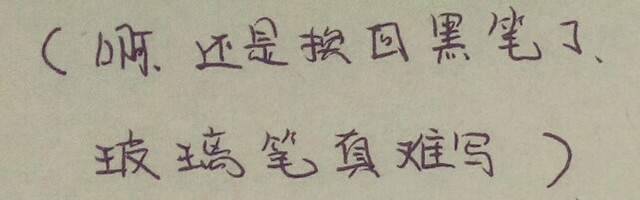 （啊、还是换回黑笔了、
玻璃笔真难写）